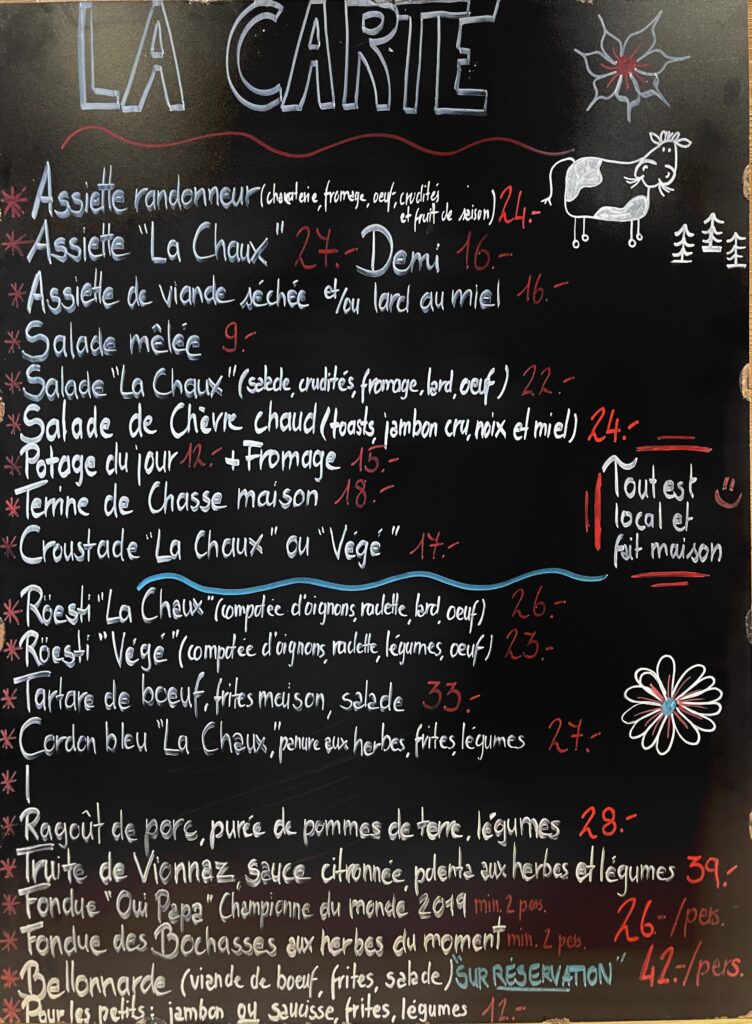 LA CARTE
* Assiette randonneur (charcuterie, fromage, oeuf, crudités
et fruit de saison) 24.-
* Assiette "La Chaux" 27.- Demi 16.-
* Assiette de viande séchée et/ou lard au miel 16.-
* Salade mêlée 9.-
* Salade "La Chaux" (salade, crudités, fromage, lard, oeuf) 22.-
* Salade de Chèvre chaud (toasts, jambon cru, noix et miel) 24.-
* Potage du jour 12.- + Fromage 15.-
* Terrine de Chasse maison 18.-
* Croustade "La Chaux" ou "Végé" 17.-
Tout est
local et
fait maison
* Röesti "La Chaux" (compotée d'oignons, raclette, lard, oeuf) 26.-
* Röesti "Végé" (compotée d'oignons, raclette, légumes, oeuf) 23.-
* Tartare de boeuf, frites maison, salade 33.-
* Cordon bleu "La Chaux", panure aux herbes, frites, légumes 27.-
*
* Ragoût de porc, purée de pommes de terre, légumes 28.-
* Truite de Vionnaz, sauce citronnée, polenta aux herbes et légumes 39.-
* Fondue "Oui Papa" Championne du monde 2019 min. 2 pers.
26.-/pers.
* Fondue des Bochasses aux herbes du moment min. 2 pers.
* Bellonnarde (viande de boeuf, frites, salade) "SUR RÉSERVATION" 42.-/pers.
* Pour les petits : jambon ou saucisse, frites, légumes 12.-